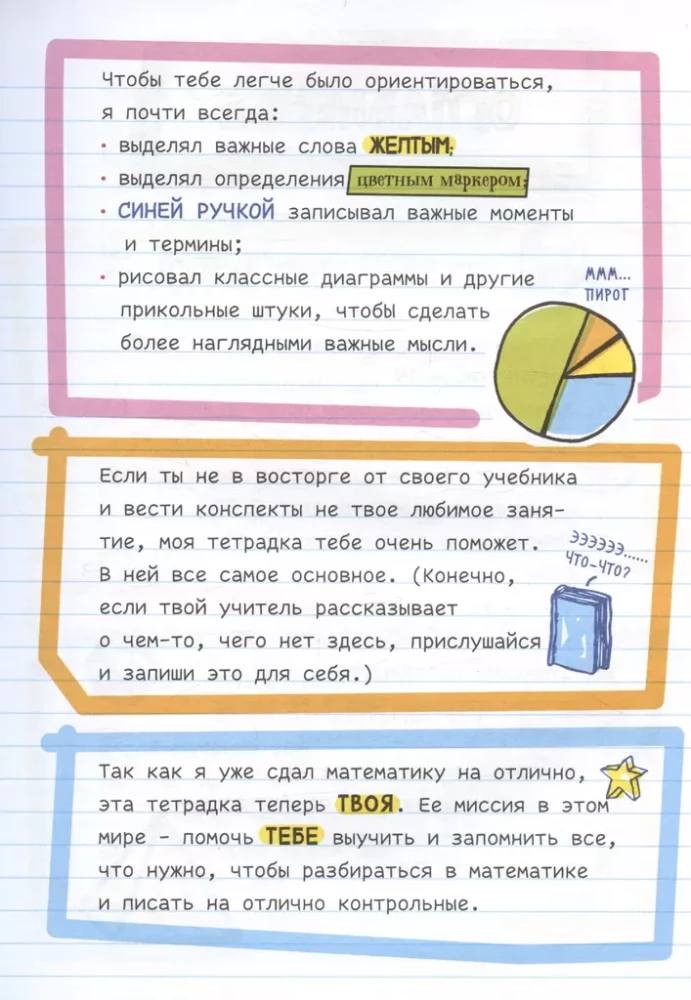 Чтобы тебе легче было ориентироваться,
я почти всегда:
• выделял важные слова ЖЕЛТЫМ;
• выделял определения цветным маркером;
• СИНЕЙ РУЧКОЙ записывал важные моменты
и термины;
• рисовал классные диаграммы и другие
прикольные штуки, чтобы сделать
более наглядными важные мысли.
МММ...
ПИРОГ
Если ты не в восторге от своего учебника
и вести конспекты не твое любимое заня-
тие, моя тетрадка тебе очень поможет.
В ней все самое основное. (Конечно,
если твой учитель рассказывает
о чем-то, чего нет здесь, прислушайся
и запиши это для себя.)
ЭЭЭЭЭЭ......
ЧТО-ЧТО?
Так как я уже сдал математику на отлично,
эта тетрадка теперь ТВОЯ. Ее миссия в этом
мире - помочь ТЕБЕ выучить и запомнить все,
что нужно, чтобы разбираться в математике
и писать на отлично контрольные.